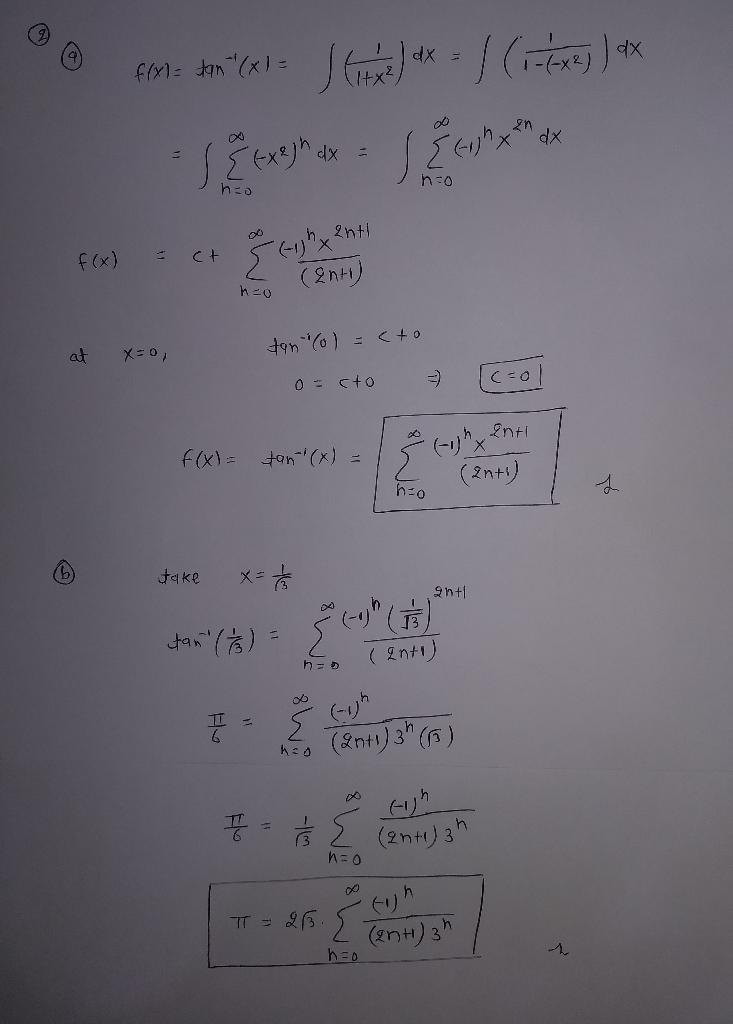 ②
ⓐ f(x) = tan⁻¹(x) = ∫ (1/(1+x²)) dx = ∫ (1/(1-(-x²))) dx
= ∫ ∑_{n=0}^{∞} (-x²)ⁿ dx = ∫ ∑_{n=0}^{∞} (-1)ⁿ x²ⁿ dx
f(x) = c + ∑_{n=0}^{∞} (-1)ⁿ x²ⁿ⁺¹/(2n+1)
at x=0, tan⁻¹(0) = c+0
0 = c+0 ⇒ c=0
f(x) = tan⁻¹(x) = ∑_{n=0}^{∞} (-1)ⁿ x²ⁿ⁺¹/(2n+1)
ⓑ take x = 1/√3
tan⁻¹(1/√3) = ∑_{n=0}^{∞} (-1)ⁿ (1/√3)²ⁿ⁺¹/(2n+1)
π/6 = ∑_{n=0}^{∞} (-1)ⁿ/((2n+1) 3ⁿ (√3))
π/6 = 1/√3 ∑_{n=0}^{∞} (-1)ⁿ/((2n+1) 3ⁿ)
π = 2√3 · ∑_{n=0}^{∞} (-1)ⁿ/((2n+1) 3ⁿ)